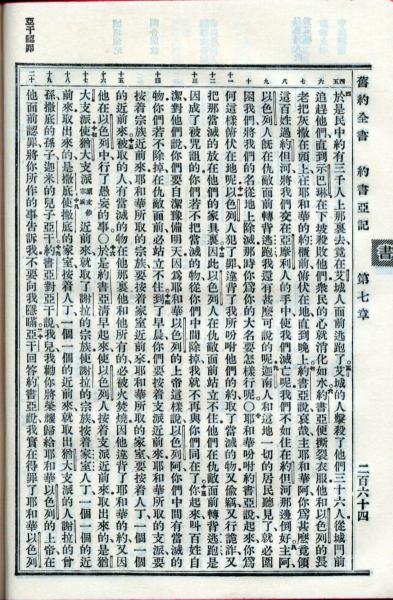 書
舊約全書　約書亞記　第七章　二百六十四
四五 於是民中約有三千人上那裏去竟在艾城人面前逃跑了艾城的人擊殺了他們三十六人從城門前
六 追趕他們直到示巴琳在下坡殺敗他們衆民的心就消化如水約書亞便撕裂衣服他和以色列的長
七 老把灰撒在頭上在耶和華的約櫃前俯伏在地直到晚上約書亞說哀哉主耶和華阿你爲甚麼竟領
八 這百姓過約但河將我們交在亞摩利人的手中使我們滅亡呢我們不如住在約但河那邊倒好主阿
九 以色列人旣在仇敵面前轉背逃跑我還有甚麼可說的呢迦南人和這地一切的居民聽見了就必圍
十 困我們將我們的名從地上除滅那時你爲你的大名要怎樣行呢○耶和華吩咐約書亞說起來你爲
十一 何這樣俯伏在地呢以色列人犯了罪違背了我所吩咐他們的約取了當滅的物又偷竊又行詭詐又
十二 把那當滅的放在他們的家具裏因此以色列人在仇敵面前站立不住他們在仇敵面前轉背逃跑是
十三 因成了被咒詛的你們若不把當滅的物從你們中間除掉我就不再與你們同在了你起來叫百姓自
潔對他們說你們要自潔豫備明天因爲耶和華以色列的上帝這樣說以色列阿你們中間有當滅的
十四 物你們若不除掉在仇敵面前必站立不住到了早晨你們要按着支派近前來耶和華所取的支派要
按着宗族近前來耶和華所取的宗族要按着家室近前來耶和華所取的家室要按着人丁一個一個
十五 的近前來被取的人有當滅的物在他那裏他和他所有的必被火焚燒因他違背了耶和華的約又因
十六 他在以色列中行了愚妄的事○於是約書亞清早起來使以色列人按着支派近前來取出來的是猶
十七 大支派使猶大支派原文作宗族近前來就取了謝拉的宗族使謝拉的宗族按着家室人丁一個一個的近
十八 前來取出來的是撒底使撒底的家室按着人丁一個一個的近前來就取出猶大支派的人謝拉的曾
十九 孫撒底的孫子迦米的兒子亞干約書亞對亞干說我兒我勸你將榮耀歸給耶和華以色列的上帝在
二十 他面前認罪將你所作的事告訴我不要向我隱瞞亞干回答約書亞說我實在得罪了耶和華以色列
亞干認罪